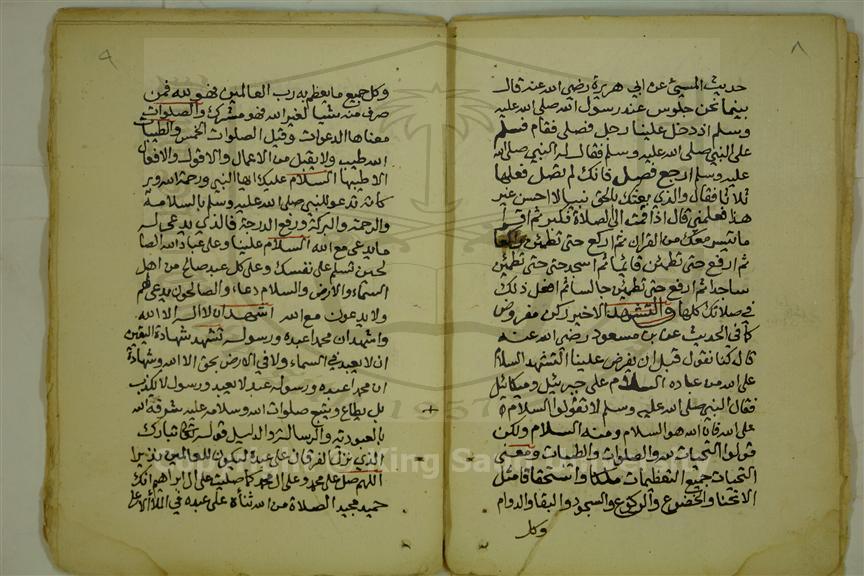 ٨
حديث المسئ عن ابي هريرة رضى الله عنه قال
بينما نحن جلوس عند رسول الله صلى الله عليه
وسلم اذ دخل علينا رجل فصلى فقام فسلم
على النبي صلى الله عليه وسلم فقال له النبي صلى الله
عليه وسلم ارجع فصل فانك لم تصل فعلها
ثلاثا فقال والذي بعثك بالحق نبيا لا احسن غير
هذا فعلمني قال اذا قمت الى الصلاة فكبر ثم اقرأ
ما تيسر معك من القران ثم اركع حتى تطمئن راكعا
ثم ارفع حتى تطمئن قائما ثم اسجد حتى حتى تطمئن
ساجدا ثم ارفع حتى تطمئن جالسا ثم افعل ذلك
في صلاتك كلها والتشهد الاخير ركن مفروض
كما في الحديث عن ابن مسعود رضى الله عنه
قال كنا نقول قبل ان يفرض علينا التشهد السلام
على الله من عباده السلام على جبريل وميكائل
فقال النبي صلى الله عليه وسلم لا تقولوا السلام
على الله فان الله هو السلام ومنه السلام ولكن
قولوا التحيات لله والصلوات والطيبات ومعنى
التحيات جميع التعظيمات ملكا واستحقاقا مثل
الانحنا والخضوع والركوع والسجود والبقا والدوام
وكل
٩
وكل جميع ما يعظم به رب العالمين فهو لله فمن
صرف منه شيا لغير الله فهو مشرك والصلوات
معناها الدعوات وقيل الصلوات الخمس والطيبات
الله طيب ولا يقبل من الاعمال والاقوال والافعال
الا طيبها السلام عليك ايها النبي ورحمة الله وبر
كاته تدعو للنبي صلى الله عليه وسلم بالسلامة
والرحمة والبركة ورفع الدرجة فالذي يدعى له
ما يدعى مع الله السلام علينا وعلى عباد الله الصا
لحين تسلم على نفسك وعلى كل عبد صالح من اهل
السماء والارض والسلام دعاء والصالحون يدعى لهم
ولا يدعون مع الله اشهد ان لا اله الا الله
واشهد ان محمدا عبده ورسوله تشهد شهادة اليقين
ان لا يعبد في السماء ولا في الارض بحق الا الله وشهادة
ان محمدا عبده ورسوله عبد لا يعبد ورسول لا يكذب
بل يطاع ويتبع صلوات الله وسلامه عليه شرفه الله
بالعبودية والرسالة والدليل قوله تعالى تبارك
الذي نزل الفرقان على عبده ليكون للعالمين نذيرا
اللهم صل على محمد وعلى ال محمد كما صليت على ال ابراهيم انك
حميد مجيد الصلاة من الله ثناؤه على عبده في الملأ الاعلى
1957
King Saud University